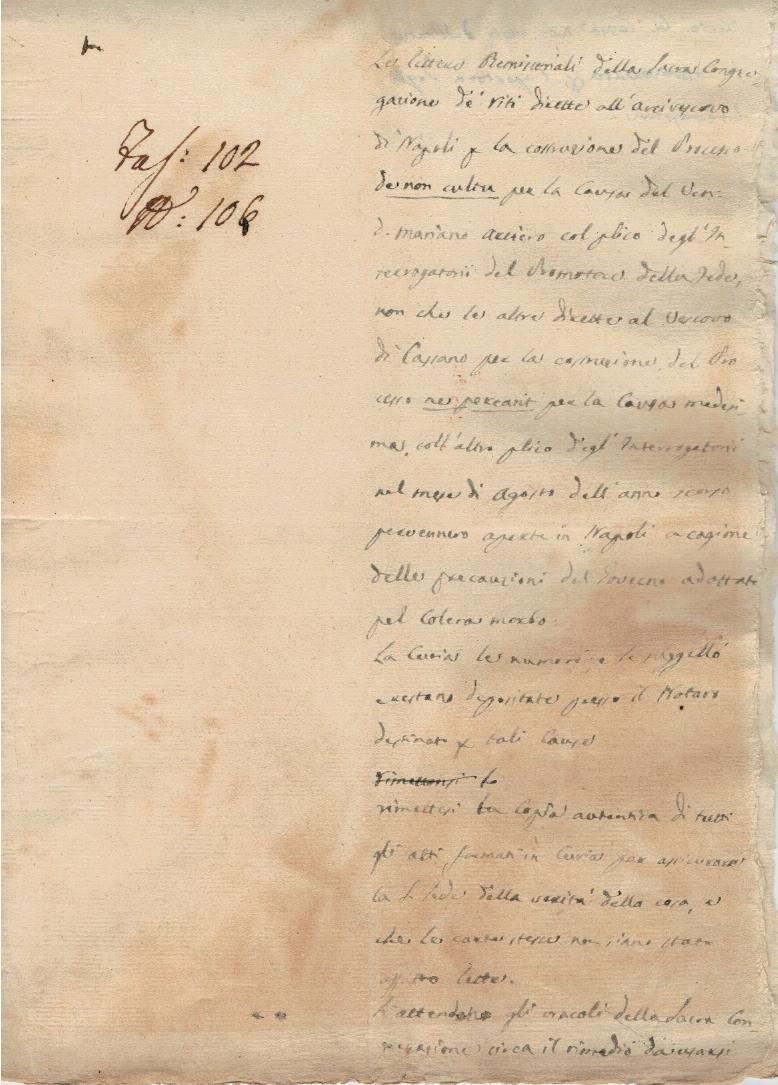 Fasc: 102
N°: 106
Le lettere Remissoriali della Sacra Congre-
gazione de' Riti dirette all'arcivescovo
di Napoli p la costruzione del Processo
de non cultu per la Causa del Ven:
d. mariano Arciero col plico degl'In-
terrogatorii del Promotore della fede,
non che le altre dirette al Vescovo
di Cassano per la costruzione del Pro
cesso ne pereant per la Causa medesi
ma, coll'altro plico degl'Interrogatorii
nel mese di Agosto dell'anno scorso
pervennero aperte in Napoli a cagione
delle precauzioni del Governo adottate
pel Colera morbo.
La Curia le numerò e le suggellò
e restano depositate presso il Notaro
destinato p tali Cause
rimettonsi le
rimettesi la Copia autentica di tutti
gli atti formati in Curia per assicurare
la S. Sede della verità della cosa, e
che le carte stesse non siano state
affatto lette.
S'attendono gli oracoli della Sacra Con-
gregazione circa il rimedio da usarsi